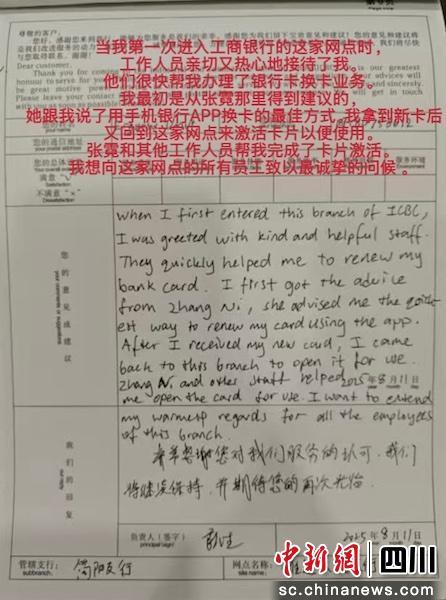 尊敬的客户：
当我第一次进入工商银行的这家网点时，
工作人员亲切又热心地接待了我。
他们很快帮我办理了银行卡换卡业务。
我最初是从张霓那里得到建议的，
她跟我说了用手机银行APP换卡的最佳方式 我拿到新卡后
又回到这家网点来激活卡片以便使用。
张霓和其他工作人员帮我完成了卡片激活。
我想向这家网点的所有员工致以最诚挚的问候 。
Dear customer:
满意 "√"
Satisfaction
不满意 "×"
Dissatisfaction
服务环境
您的意见或建议
when I first entered this branch of ICBC,
I was greeted with kind and helpful staff.
They quickly helped me to renew my
bank card. I first got the advice
from Zhang Ni, she advised me the quick
est way to renew my card using the app.
After I received my new card, I came
back to this branch to open it for use.
Zhang Ni and other staff helped 2025年8月11日
me open the card for use. I want to extend
my warmest regards for all the employees
of this branch.
我们的回复
您对我们服务的认可，我们
将继续保持，并期待您的再次光临
负责人（签字）
2025年8月11日
管辖支行：
subbranch:
简阳支行
网点名称：
中新网 四川
sc.chinanews.com.cn